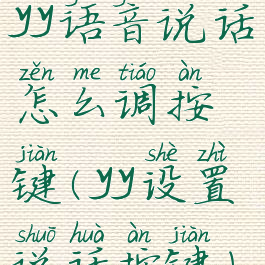 yy语音说话
zěn me tiáo àn
怎么调按
jiàn shè zhì
键(yy设置
shuō huà àn jiàn
说话按键)